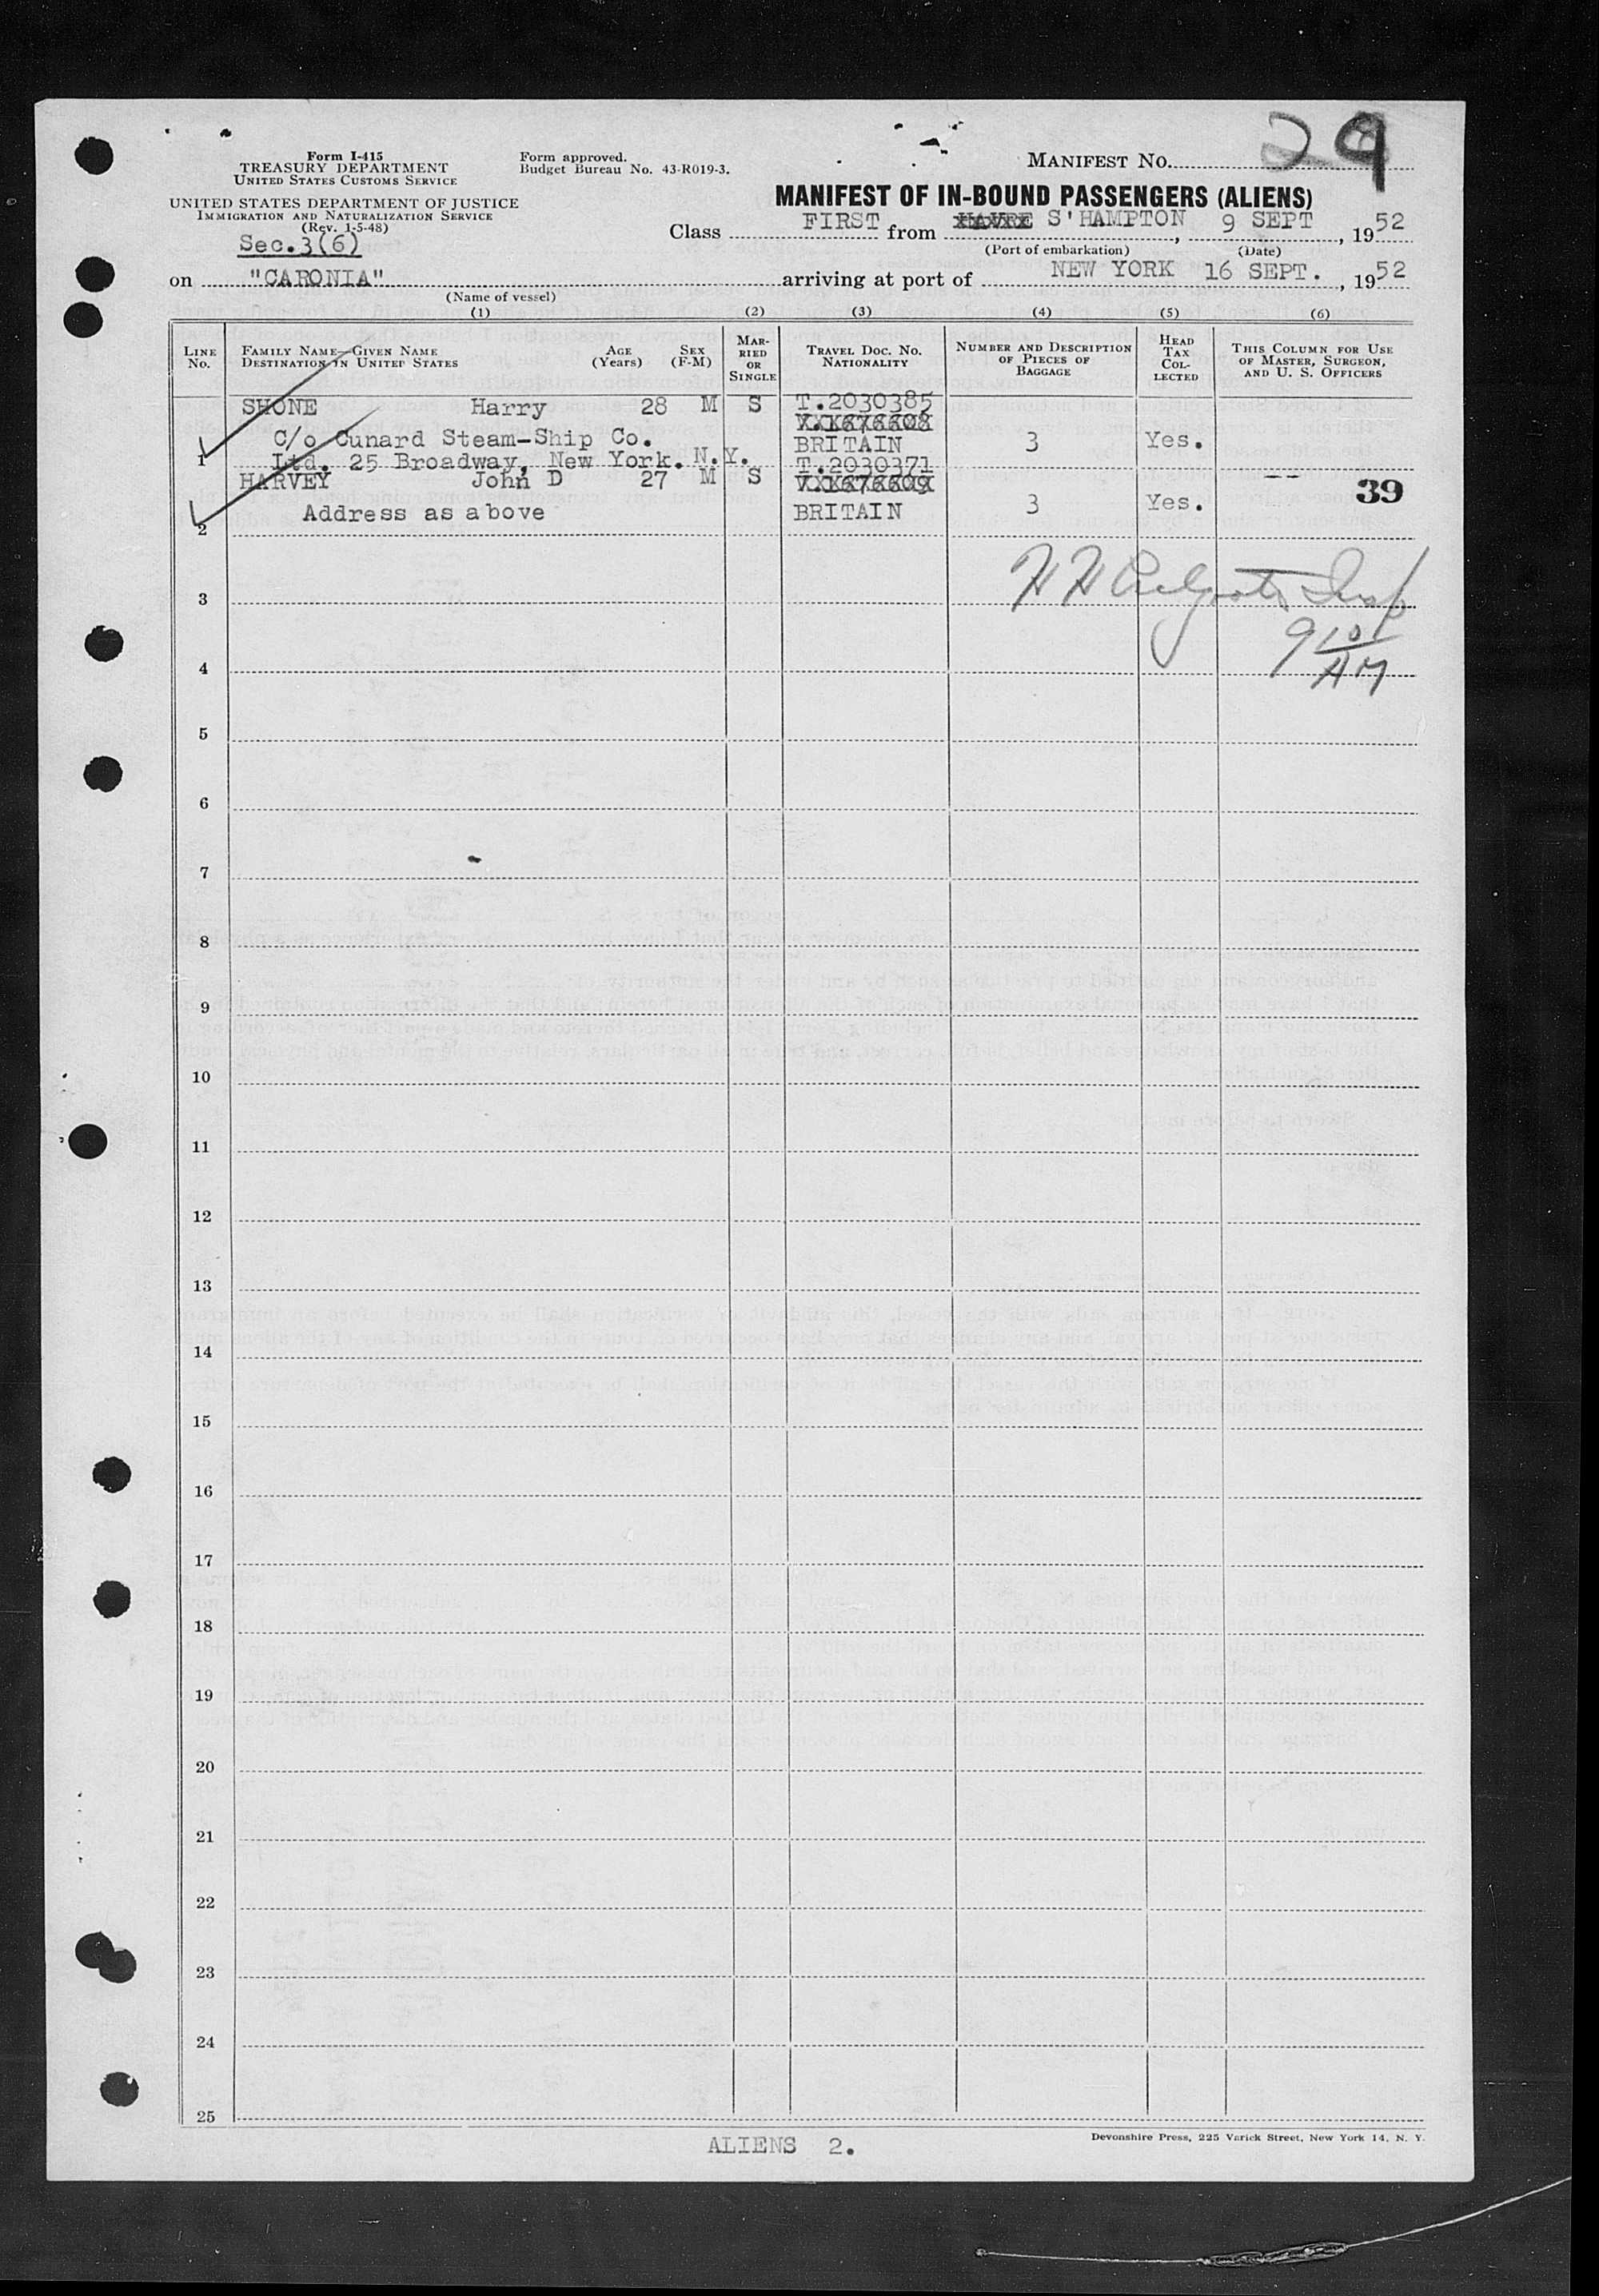 29
Form I-415
TREASURY DEPARTMENT
UNITED STATES CUSTOMS SERVICE
UNITED STATES DEPARTMENT OF JUSTICE
IMMIGRATION AND NATURALIZATION SERVICE
(Rev. 1-5-48)
Sec.3(6)
Form approved.
Budget Bureau No. 43-R019-3.
MANIFEST NO.
MANIFEST OF IN-BOUND PASSENGERS (ALIENS)
Class FIRST from HAVRE S'HAMPTON, 9 SEPT, 1952
(Port of embarkation) (Date)
on "CARONIA" arriving at port of NEW YORK 16 SEPT., 1952
(Name of vessel)
(1) (2) (3) (4) (5) (6)
LINE NO. FAMILY NAME—GIVEN NAME DESTINATION IN UNITED STATES AGE (Years) SEX (F-M) MARRIED OR SINGLE TRAVEL DOC. NO. NATIONALITY NUMBER AND DESCRIPTION OF PIECES OF BAGGAGE HEAD TAX COLLECTED THIS COLUMN FOR USE OF MASTER, SURGEON, AND U. S. OFFICERS
SHONE Harry 28 M S T.2030385
C/o Cunard Steam-Ship Co. BRITAIN 3 Yes.
1 Ltd. 25 Broadway, New York. N.Y.
HARVEY John D 27 M S T.2030371
39
Address as above BRITAIN 3 Yes.
2
3
9 10 AM
4
5
6
7
8
9
10
11
12
13
14
15
16
17
18
19
20
21
22
23
24
25
ALIENS 2.
Devonshire Press, 225 Varick Street, New York 14, N. Y.